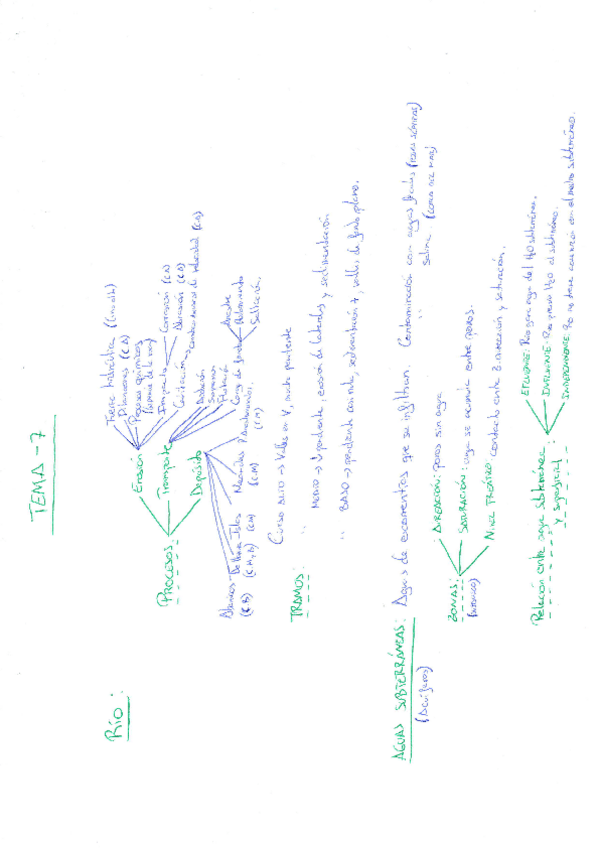 TEMA - 7
Río:
PROCESOS:
Erosión
Fuerza hidráulica
Diluciones
Procesos químicos
Impacto
Corrosión
Abrasión
Cavitación
Transporte
Disolución
Suspensión
Flotación
Carga de fondo
Arrastre
Rodamiento
Saltación.
Depósito
Abanicos - Deltas - Islas
Meandros
(C.M)
TRAMOS:
Curso ALTO → Valles en V, mucha pendiente
" MEDIO → ↓ pendiente, erosión de laterales y sedimentación
" BAJO → pendiente casi nula, sedimentación ↑, valles de fondo plano.
AGUAS SUBTERRÁNEAS: Aguas de escorrentías que se infiltran. Contaminación con aguas fecales
(Acuíferos)
" salina.
ZONAS:
AIREACIÓN: poros sin agua
SATURACIÓN: agua se acumula entre poros.
NIVEL FREÁTICO: contacto entre Z. aireación y saturación.
Relación entre agua subterránea
y superficial
EFLUENTE: Río gana agua del H2O subterránea.
INFLUENTE: Río pierde H2O al subterráneo.
INDEPENDIENTE: Río no tiene conexión con el medio subterráneo.